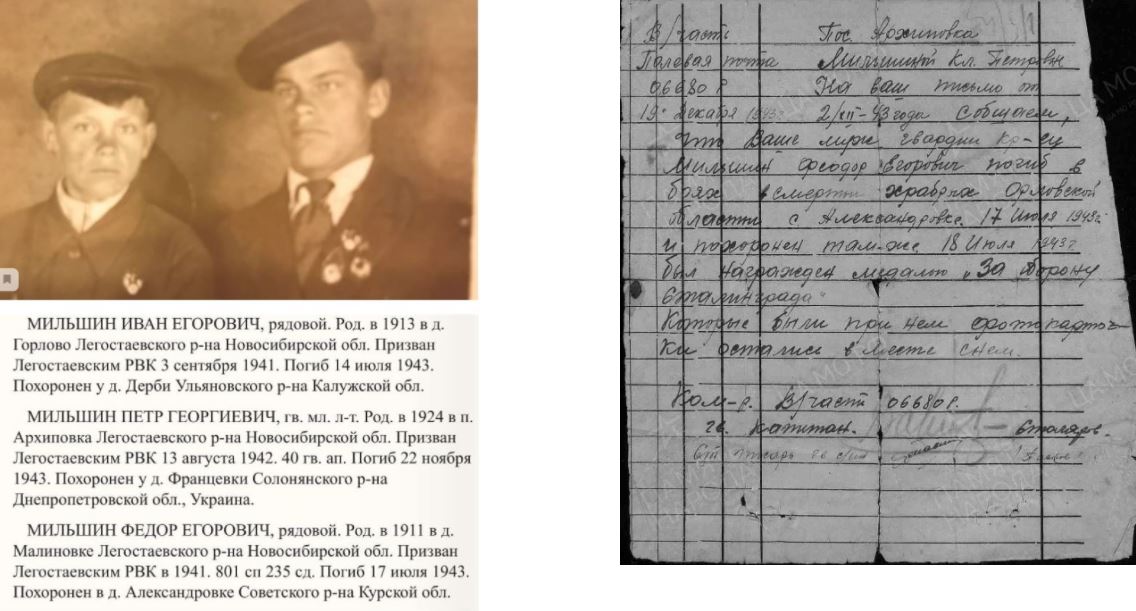 МИЛЬШИН ИВАН ЕГОРОВИЧ, рядовой. Род. в 1913 в д.
Горлово Легостаевского р-на Новосибирской обл. Призван
Легостаевским РВК 3 сентября 1941. Погиб 14 июля 1943.
Похоронен у д. Дерби Ульяновского р-на Калужской обл.
МИЛЬШИН ПЕТР ГЕОРГИЕВИЧ, гв. мл. л-т. Род. в 1924 в п.
Архиповка Легостаевского р-на Новосибирской обл. Призван
Легостаевским РВК 13 августа 1942. 40 гв. ап. Погиб 22 ноября
1943. Похоронен у д. Францевки Солонянского р-на
Днепропетровской обл., Украина.
МИЛЬШИН ФЕДОР ЕГОРОВИЧ, рядовой. Род. в 1911 в д.
Малиновке Легостаевского р-на Новосибирской обл. Призван
Легостаевским РВК в 1941. 801 сп 235 сд. Погиб 17 июля 1943.
Похоронен в д. Александровке Советского р-на Курской обл.
В/часть Пос. Архиповка
Полевая почта Мильшиной Кл. Петровн
06680 Р На ваш письмо от
19 Декабря 1943г 2/XII-43 года Собщаем,
что Ваше муж гвардии кр-ец
Мильшин Феодор Егорович погиб в
боях смертью храбрых Орловской
области с. Александровке. 17 Июля 1943г
и похоронен там-же 18 Июля 1943г
был награжден медалью „За оборону
Сталинграда"
Которые были при нем фотокарточ-
ки остались в месте с нем.
Ком-р. В/части 06680 Р.
гв. капитан. Столяров.